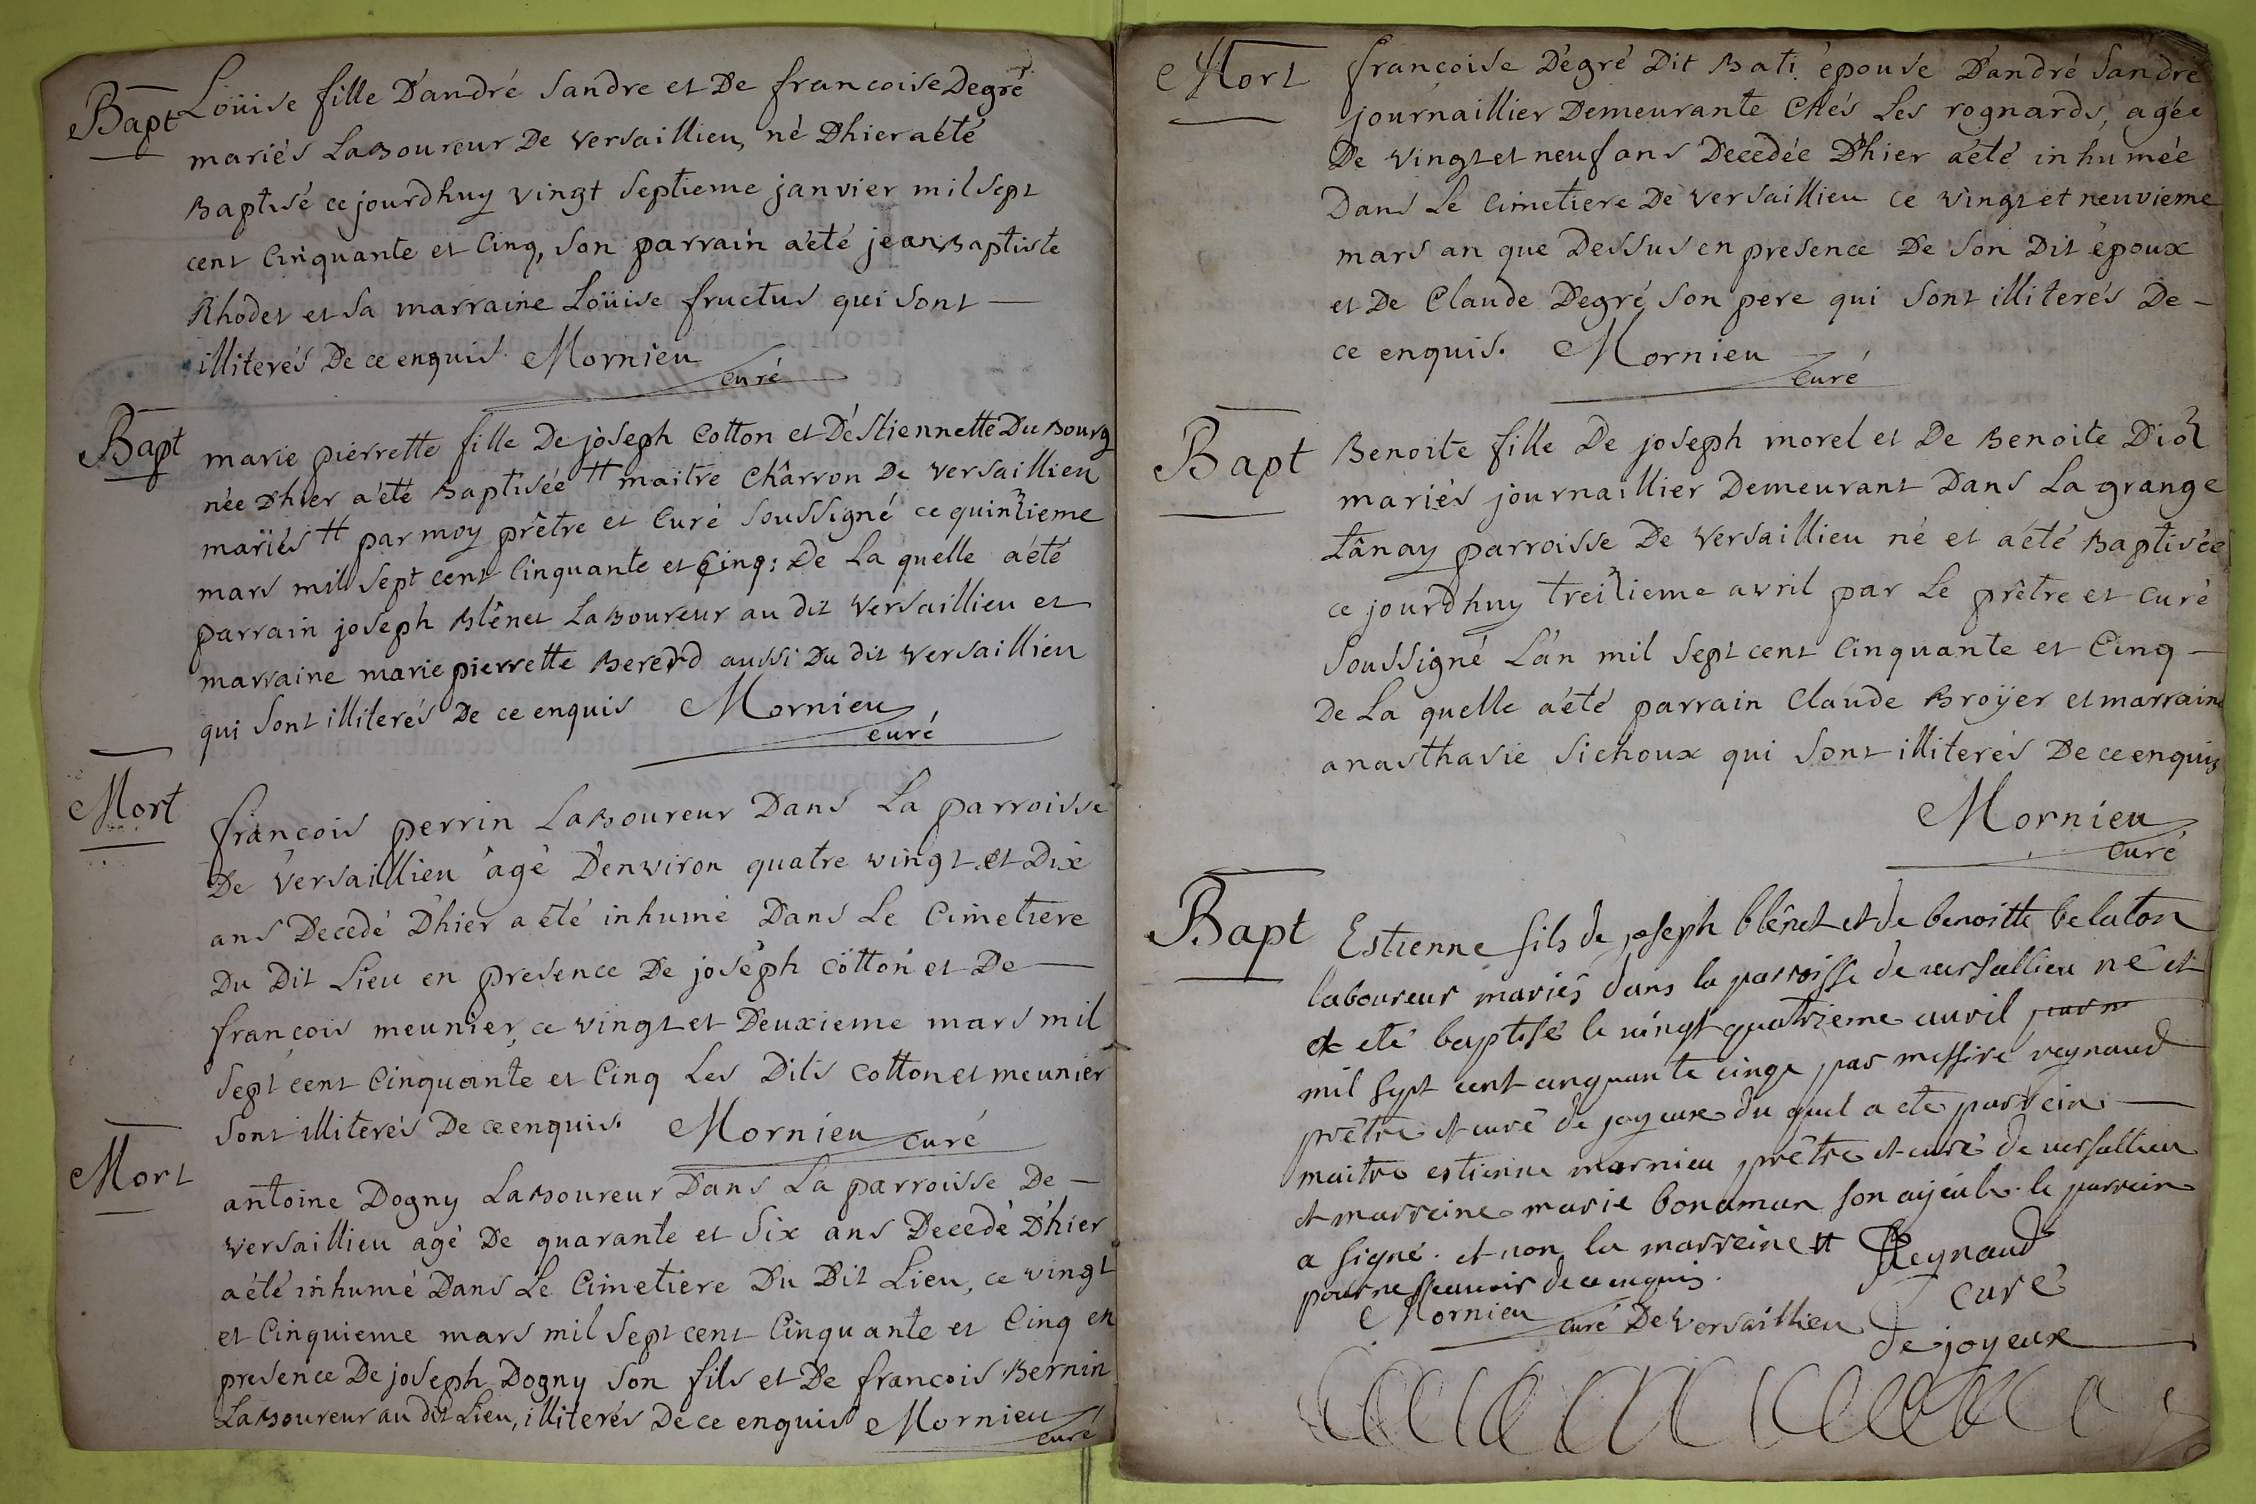 Bapt
Loüise fille D'andré Sandre et De francoise Degré
mariés Laboureur De versaillieu, né D'hier a été
Baptisé ce jourd'huy vingt Septieme janvier mil Sept
cent Cinquante et Cinq, Son parrain a été jean Baptiste
Rhodet et Sa marraine Loüise fructus qui Sont —
illiterés De ce enquis. Mornieu
curé
Bapt
marie pierrette fille De joseph Cotton et D'éstiennette Du Bourg
née D'hier a été Baptisée # maitre Chârron De versaillieu
mariés # par moy prêtre et Curé Soussigné ce quinzieme
mars mil sept cent Cinquante et Cinq : De La quelle a été
parrain joseph Blênet Laboureur au dit versaillieu et
marraine marie pierrette Bererd aussi Du dit versaillieu
qui Sont illiterés De ce enquis Mornieu
curé
Mort
françois perrin Laboureur Dans La parroisse
De versaillieu âgé D'environ quatre vingt et Dix
ans Decedé D'hier a été inhumé Dans Le Cimetiere
Du Dit Lieu en presence De joseph cotton et De —
françois meunier, ce vingt et Deuxieme mars mil
Sept cent Cinquante et Cinq Les Dits cotton et meunier
Sont illiterés De ce enquis. Mornieu curé
Mort
antoine Dogny Laboureur Dans La parroisse De —
versaillieu agé De quarante et Six ans Decedé D'hier
a été inhumé Dans Le Cimetiere Du Dit Lieu, ce vingt
et Cinquieme mars mil Sept cent Cinquante et Cinq en
presence De joseph Dogny Son fils et De francois Bernin
Laboureur au dit Lieu, illiterés De ce enquis Mornieu
curé
Mort
francoise Degré Dit Bati épouse D'andré Sandre
journaillier Demeurante Chés Les rognards, agée
De vingt et neuf ans Decedée D'hier a été inhumée
Dans Le Cimetiere De versaillieu ce vingt et neuvieme
mars an que Dessus en presence De Son Dit époux
et De Claude Degré Son pere qui Sont illiterés De —
ce enquis. Mornieu
curé
Bapt
Benoite fille De joseph morel et De Benoite Dioz
mariés journaillier Demeurant Dans La grange
tânay parroisse De versaillieu né et a été Baptisée
ce jourd'huy treizieme avril par Le prêtre et curé
Soussigné L'an mil Sept cent Cinquante et Cinq —
De La quelle a été parrain Claude Broÿer et marraine
anasthasie Sichoux qui Sont illiterés De ce enquis
Mornieu
curé
Bapt
Estienne fils de joseph blênet et de benoitte belaton
laboureur mariés dans la parroisse de versallieu né et
a eté baptisé le vingt quatrieme avril
mil sept cent cinquante cinqe par messire reynaud
prêtre et curé de joyeux du quel a ete parrein —
maitre estienne mornieu prêtre et curé de versallieu
et marreine marie bonamur son ajeule le parrein
a signé . et non la marreine #
pour ne sceavoir de ce enquis.
Reynaud
curé
de joyeux
Mornieu
curé De versaillieu